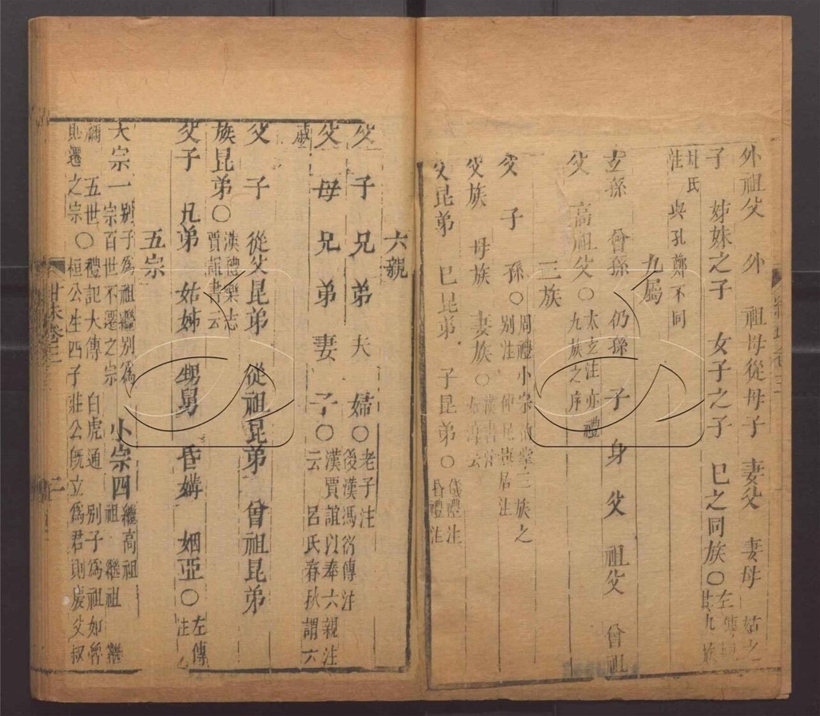 外祖父 外祖母從母子 妻父 妻母 姑之
子 姊妹之子 女子之子 巳之同族〇左傳
杜氏
註 與孔鄭不同
九屬
玄孫 曾孫 仍孫 子 身 父 祖父 曾祖
父 高祖父〇太玄注亦
九族之序
三族
父 子 孫〇周禮小宗伯掌三族之
別注
父族 母族 妻族
父昆弟 巳昆弟 子昆弟〇儀禮注
昏禮注
六親
父 子 兄 弟 夫 婦〇老子注
後漢馮衍傳注
父 母 兄 弟 妻 子〇漢賈誼以奉六親注
云 呂氏春秋謂六
戚
父 子 從父昆弟 從祖昆弟 曾祖昆弟
族昆弟〇漢禮樂志
賈誼書云
父子 兄弟 姑姊 甥舅 昏媾 姻亞〇左傳
注
五宗
大宗一別子為祖繼別為
宗百世不遷之宗 小宗四繼高祖
祖 繼祖 繼
禰 五世
則遷之宗〇禮記大傳 白虎通 別子為祖如魯
桓公生四子莊公既立為君則慶父叔
卷三
二